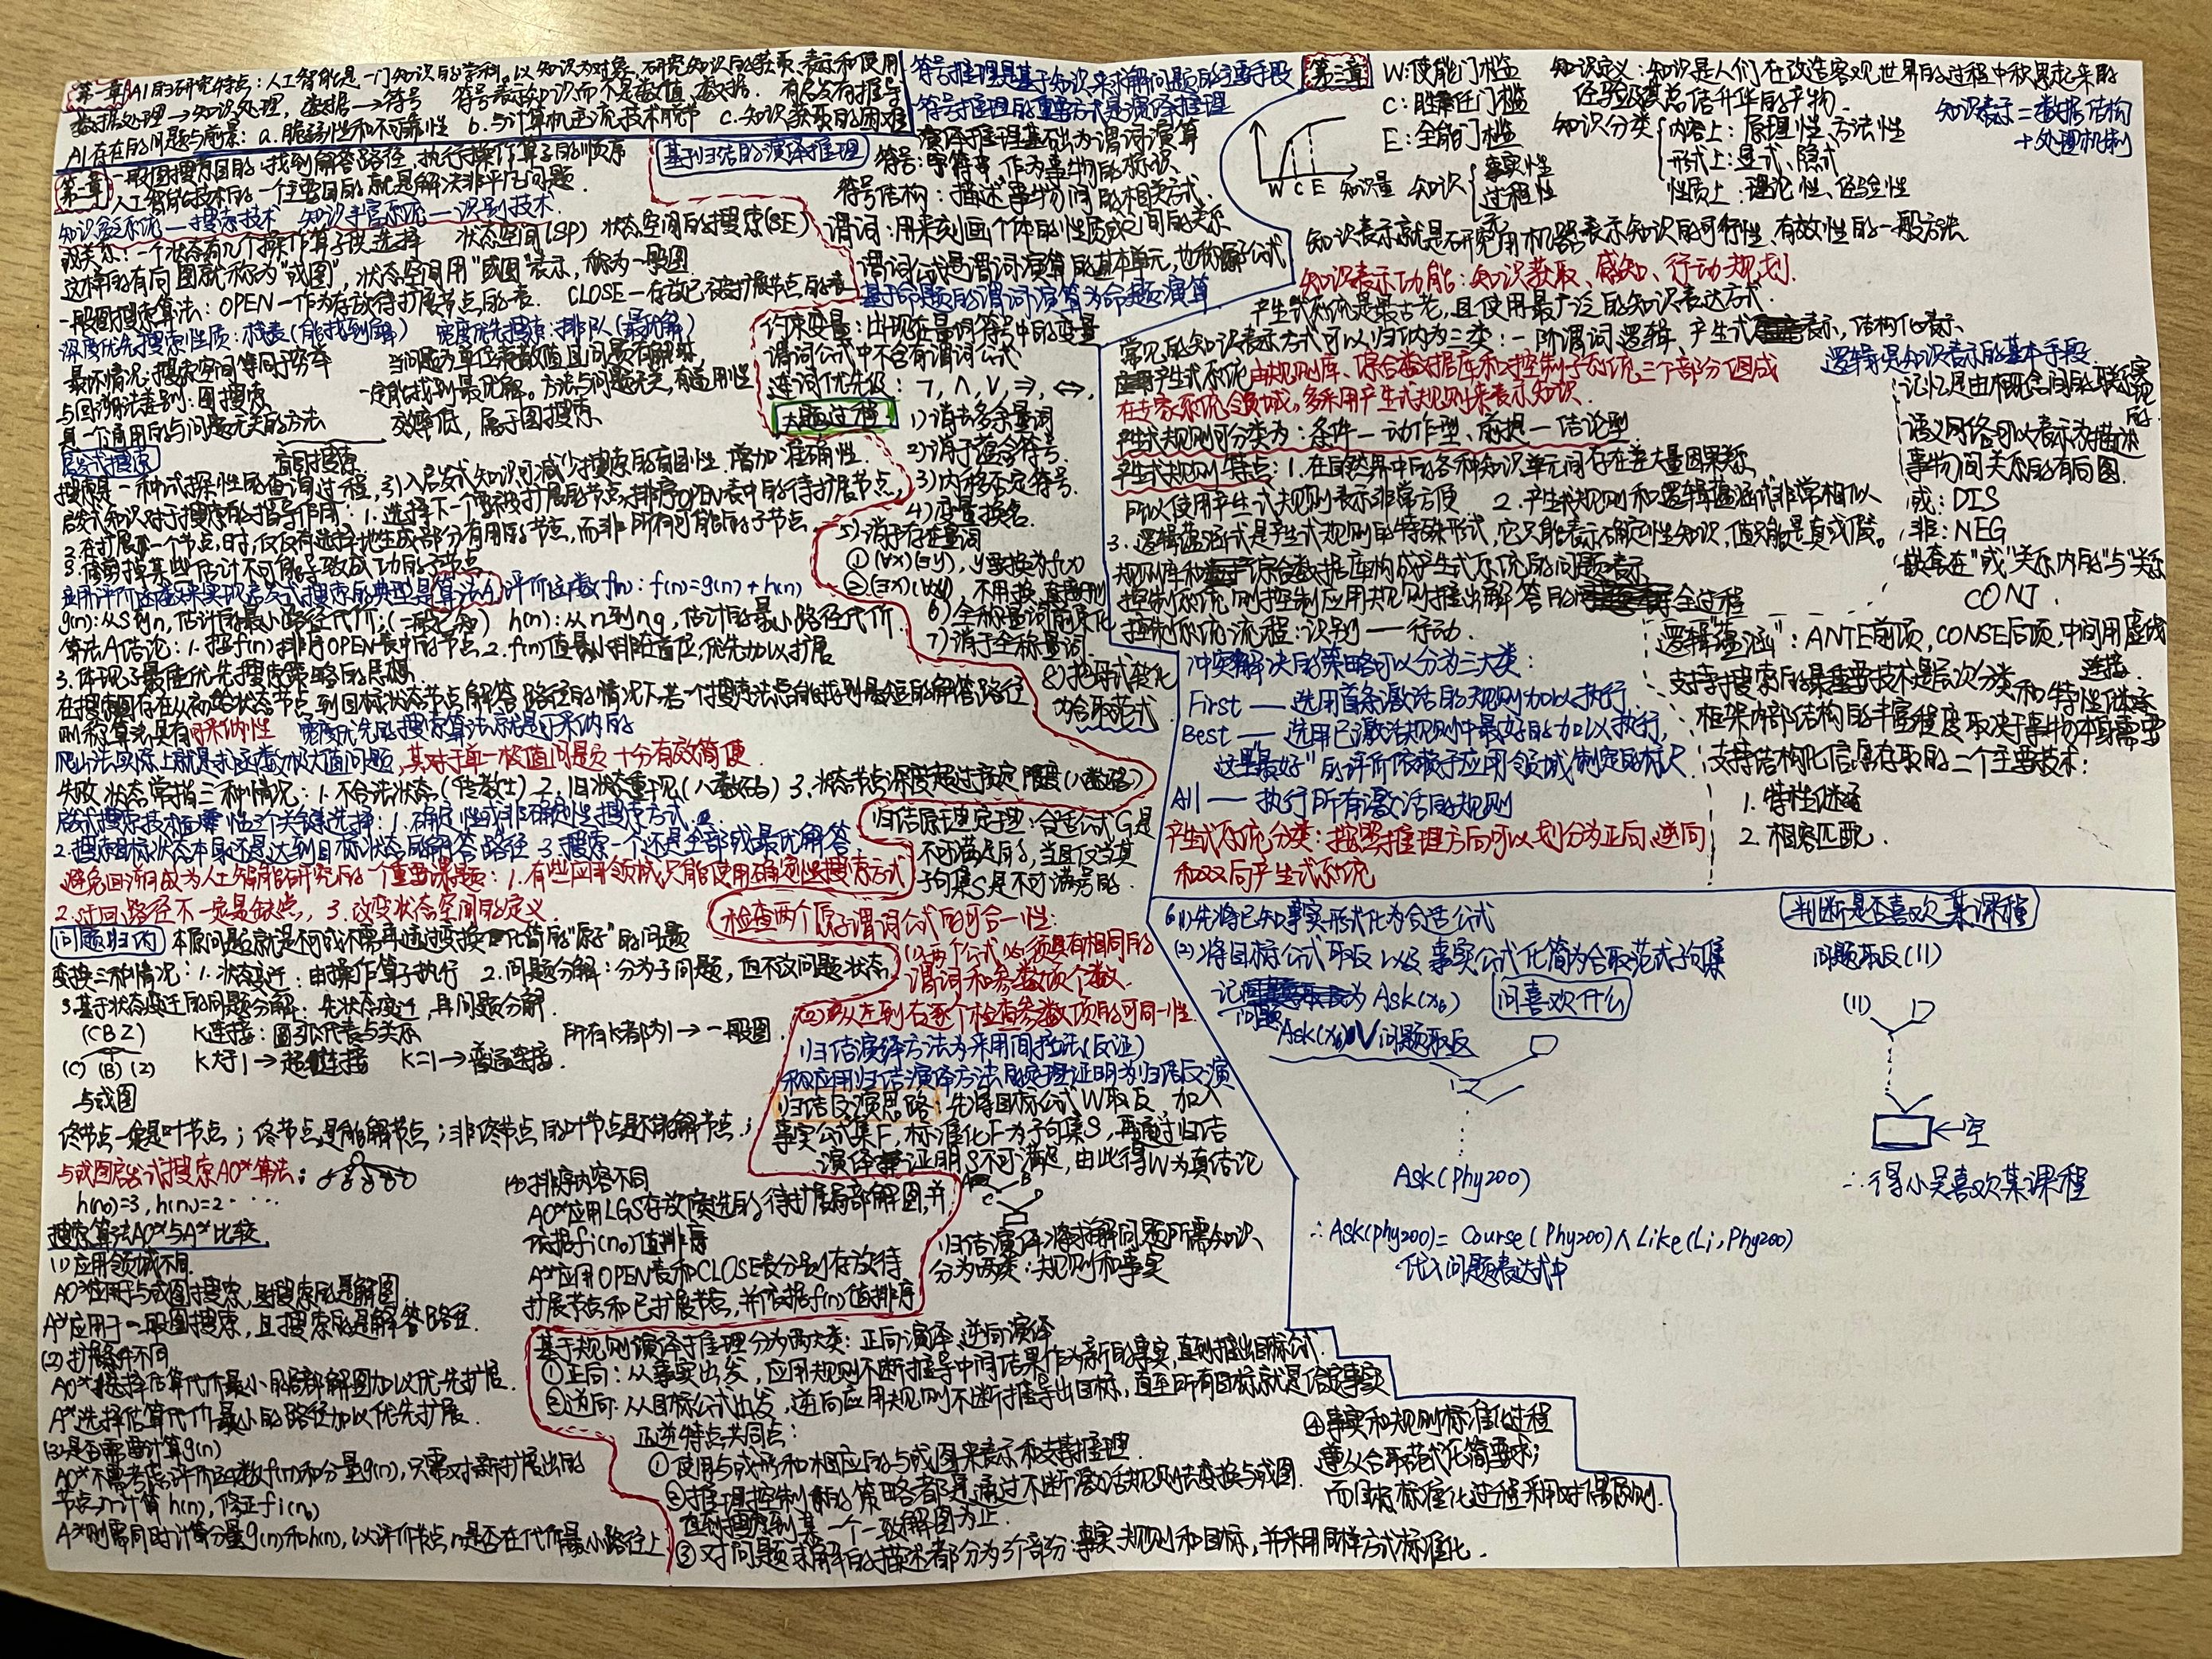 第一章 AI的研究特点：人工智能是一门知识的学科。以知识为对象，研究知识的获取、表示和使用
数据处理→知识处理，数据→符号 符号表示知识而不是数值、数据. 有启发有推导
AI存在的问题与前景：a.脆弱性和不可靠性 b.与计算机主流技术脱节 c.知识获取的困难
一般图搜索目的：找到解答路径，执行操作算子的顺序
第二章 人工智能技术的一个主要目的就是解决非平凡问题.
知识贫乏系统—搜索技术 知识丰富系统—识别技术.
或关系：一个状态有几个操作算子供选择 状态空间(SP) 状态空间的搜索(SE)
这样的有向图就称为"或图"，状态空间用"或图"表示，称为一般图.
一般图搜索算法：OPEN—作为存放待扩展节点的表. CLOSE—存放已被扩展节点的表
深度优先搜索性质：栈表(能找到解) 宽度优先搜索：排队(最优解)
最坏情况：搜索空间等同于穷举 当问题为单位耗散值且问题有解时，
与回溯法差别：图搜索 一定能找到最优解。方法与问题无关，有通用性
是一个通用的与问题无关的方法 效率低，属于图搜索.
启发式搜索 盲目搜索
搜索是一种试探性的查询过程，引入启发式知识可减少搜索的盲目性. 增加准确性.
启发式知识对于搜索的指导作用：1.选择下一个要被扩展的节点，排序OPEN表中的待扩展节点
2.在扩展一个节点时，仅仅有选择地生成部分有用的节点，而非所有可能的子节点.
3.修剪掉某些估计不可能导致成功的子节点
应用评价函数来实现启发式搜索的典型是算法A. 评价函数f(n)：f(n)=g(n)+h(n)
g(n)：从S到n，估计的最小路径代价；h(n)：从n到ng，估计的最小路径代价.
算法A结论：1.按f(n)排序OPEN表中的节点 2.f(n)值最小排在首位，优先加以扩展
3.体现了最佳优先搜索策略的思想.
在搜索图存在从初始状态节点到目标状态节点解答路径的情况下，若一个搜索法总能找到最短的解答路径
则称算法具有可采纳性 宽度优先的搜索算法就是可采纳的
爬山法实际上就是求函数极大值问题，其对于单一极值问题十分有效简便
失败状态常指三种情况：1.不合法状态(传教士) 2.旧状态重现(八数码) 3.状态节点深度超过预定限度(八数码)
启发式搜索技术面临3个关键选择：1.确定性或非确定性搜索方式
2.搜索目标状态本身还是达到目标状态的解答路径 3.搜索一个还是全部或最优解答.
避免迂回成为人工智能研究的一个重要课题：1.有些应用领域只能使用确定性搜索方式
2.迂回路径不一定是缺点，3.改变状态空间的定义.
问题归约 本原问题就是不可或不需再通过变换化简的"原子"的问题
变换三种情况：1.状态变迁：由操作算子执行 2.问题分解：分为子问题，但不改问题状态
3.基于状态变迁的问题分解：先状态变迁，再问题分解.
(CBZ) K连接：圆弧代表与关系 所有K都为1→一般图.
(C) (B) (Z) K大于1→超链连接 K=1→普通连接.
与或图
终节点一定是叶节点；终节点是能解节点；非终节点的叶节点是不能解节点；
与或图启发式搜索AO*算法：
h(n0)=3, h(n1)=2····
搜索算法AO*与A*比较
(1)应用领域不同.
AO*应用于与或图搜索，且搜索的是解图.
A*应用于一般图搜索，且搜索的是解答路径.
(2)扩展条件不同
AO*择选估算代价最小的局部解图加以优先扩展.
A*选择估算代价最小的路径加以优先扩展.
(3)是否需要计算g(n)
AO*不需考虑评价函数f(n)和分量g(n)，只需对新扩展出的
节点n计算h(n)，修正fi(n0)
A*则需同时计算分量g(n)和h(n)，以评价节点n是否在代价最小路径上
(4)排序内容不同
AO*应用LGS存放候选的待扩展局部解图，并
依据fi(n0)值排序
A*应用OPEN表和CLOSE表分别存放待
扩展节点和已扩展节点，并依据f(n)值排序
基于归结的演绎推理
符号推理是基于知识来求解问题的主要手段
符号推理的重要方式是演绎推理
演绎推理基础为谓词演算
符号：字符串，作为事物的标识
符号结构：描述事物间的相关方式.
谓词：用来刻画个体的性质或之间的关系
谓词公式是谓词演算的基本单元，也称原子公式
基于命题的谓词演算为命题演算
约束变量：出现在量词符号中的变量
谓词公式中不含有谓词公式
连词优先级：¬,∧,∨,⇒,⇔.
大题过程 1)消去多余量词
2)消于蕴含符号.
3)内移否定符号.
4)变量换名.
5)消于存在量词
①(∀x)(∃y)，y要换为f(x)
②(∃x)(∀y)，不用换
6)全称量词前束化
7)消于全称量词.
8)把母式转化
为合取范式.
归结原理定理：合适公式G是
不可满足的，当且仅当其
子句集S是不可满足的.
检查两个原子谓词公式的可合一性：
(1)两个公式必须具有相同的
谓词和参数项个数.
(2)从左到右逐个检查参数项的可同一性.
归结演绎方法为采用间接法(反证)
称应用归结演绎方法的定理证明为归结反演
归结反演思路：先将目标公式W取反，加入
事实公式集F，标准化F为子句集S，再通过归结
演绎证明S不可满足，由此得W为真结论
归结演绎将求解问题所需知识、
分为两类：规则和事实
基于规则演绎推理分为两大类：正向演绎、逆向演绎
①正向：从事实出发，应用规则不断推导中间结果作为新的事实，直到推出目标公式.
②逆向：从目标公式出发，逆向应用规则不断推导出目标，直至所有目标就是给定事实
正逆特点共同点：
①使用与或形和相应的与或图来表示和支持推理.
②推理控制的策略都是通过不断激活规则去变换与或图.
直到搜索到某一个一致解图为止.
③对问题求解的描述都分为3个部分：事实、规则和目标，并采用同样方式标准化.
④事实和规则标准化过程
遵从合取范式化简要求；
而目标标准化过程采用对偶原则.
第三章 W：使能门槛
C：胜任门槛
E：全能门槛
W C E 知识量 知识 事实性
过程性
知识定义：知识是人们在改造客观世界的过程中积累起来的
经验及其总结升华的产物.
知识分类 内容上：原理性、方法性
形式上：显式、隐式
性质上：理论性、经验性
知识表示=数据结构
+处理机制
知识表示就是研究用机器表示知识的可行性、有效性的一般方法
知识表示功能：知识获取、感知、行动规划.
产生式系统是最古老，且使用最广泛的知识表达方式.
常见的知识表示方式可以归纳为三类：一阶谓词逻辑、产生式表示，结构化表示.
产生式系统由规则库、综合数据库和控制子系统三个部分组成
在专家系统领域，多采用产生式规则来表示知识.
产生式规则可分类为：条件—动作型、前提—结论型.
产生式规则特点：1.在自然界中的各种知识单元间存在着大量因果关系.
所以使用产生式规则表示非常方便 2.产生式规则和逻辑蕴涵式非常相似
3.逻辑蕴涵式是产生式规则的特殊形式，它只能表示确定性知识，值只能是真或假。
规则库和综合数据库构成产生式系统的问题表示
控制系统则控制应用规则推出解答的全过程
控制系统流程：识别——行动.
冲突解决的策略可以分为三大类：
First — 选用首条激活的规则加以执行.
Best — 选用已激活规则中最好的加以执行，
这里"最好"的评价依赖于应用领域制定的标尺.
All — 执行所有激活的规则
产生式系统分类：按照推理方向可以划分为正向、逆向
和双向产生式系统
逻辑是知识表示的基本手段.
记忆是由概念间的联系实现的.
语义网络可以表示为描述
事物间关系的有向图.
或：DIS
非：NEG
嵌套在"或"关系内的"与"关系
CONJ.
逻辑"蕴涵"：ANTE前项，CONSE后项，中间用虚线
连接.
支持搜索的最重要技术是层次分类和特性继承
框架内部结构的丰富程度取决于事物本身需要
支持结构化信息存取的二个主要技术：
1.特性继承
2.相容匹配.
6.(1)先将已知事实形式化为合适公式
(2)将目标公式取反以及事实公式化简为合取范式子句集
记问题为Ask(x6) 问喜欢什么
Ask(x6)∨问题取反
Ask(Phy200)
∴Ask(phy200)=Course(Phy200)∧Like(Li,Phy200)
代入问题表达式中
判断是否喜欢某课程
问题取反(11)
(11)
←空
∴得小吴喜欢某课程